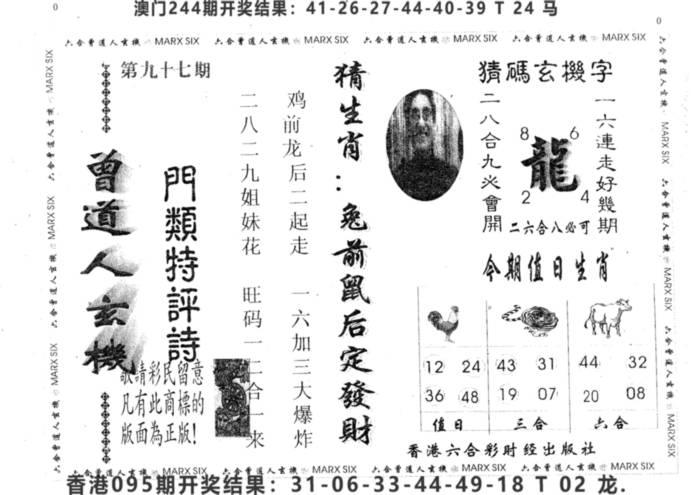 澳门244期开奖结果：41-26-27-44-40-39 T 24 马
六合曾道人玄機 MARX SIX 六合曾道人玄機 MARX SIX 六合曾道人玄機 MARX SIX 六合曾道人玄機 MARX SIX
第九十七期
曾道人玄機
門類特評詩
敬請彩民留意
凡有此商標的
版面為正版!
鸡前龙后二起走 一六加三大爆炸
二八二九姐妹花 旺码一二合一来
猜生肖：兔前鼠后定發財
猜碼玄機字
一六連走好幾期
二八合九必會開
8 6
龍
2 4
二六合八必可
今期值日生肖
12 24 43 31 44 32
36 48 19 07 20 08
值日 三合 六合
香港六合彩财经出版社
六合曾道人玄機 MARX SIX 六合曾道人玄機 MARX SIX 六合曾道人玄機 MARX SIX 六合曾道人玄機 MARX SIX
香港095期开奖结果：31-06-33-44-49-18 T 02 龙.